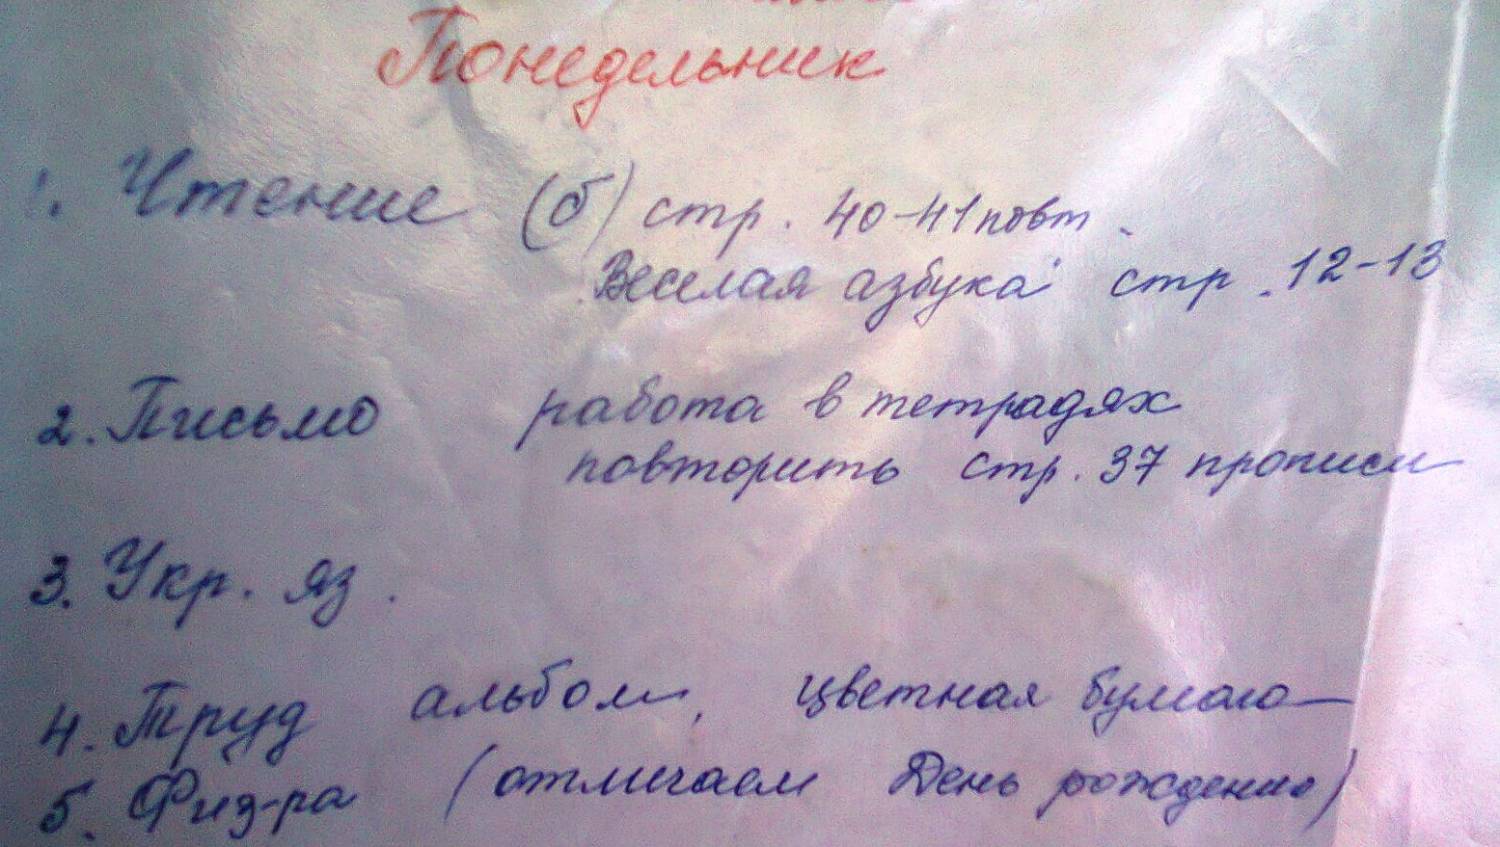 Понедельник
1. Чтение (б) стр. 40-41 повт.
Веселая азбука" стр. 12-13
2. Письмо работа в тетрадях
повторить стр. 37 прописи
3. Укр. яз.
4. Труд альбом, цветная бумага
5. Физ-ра (отмечаем День рождения)